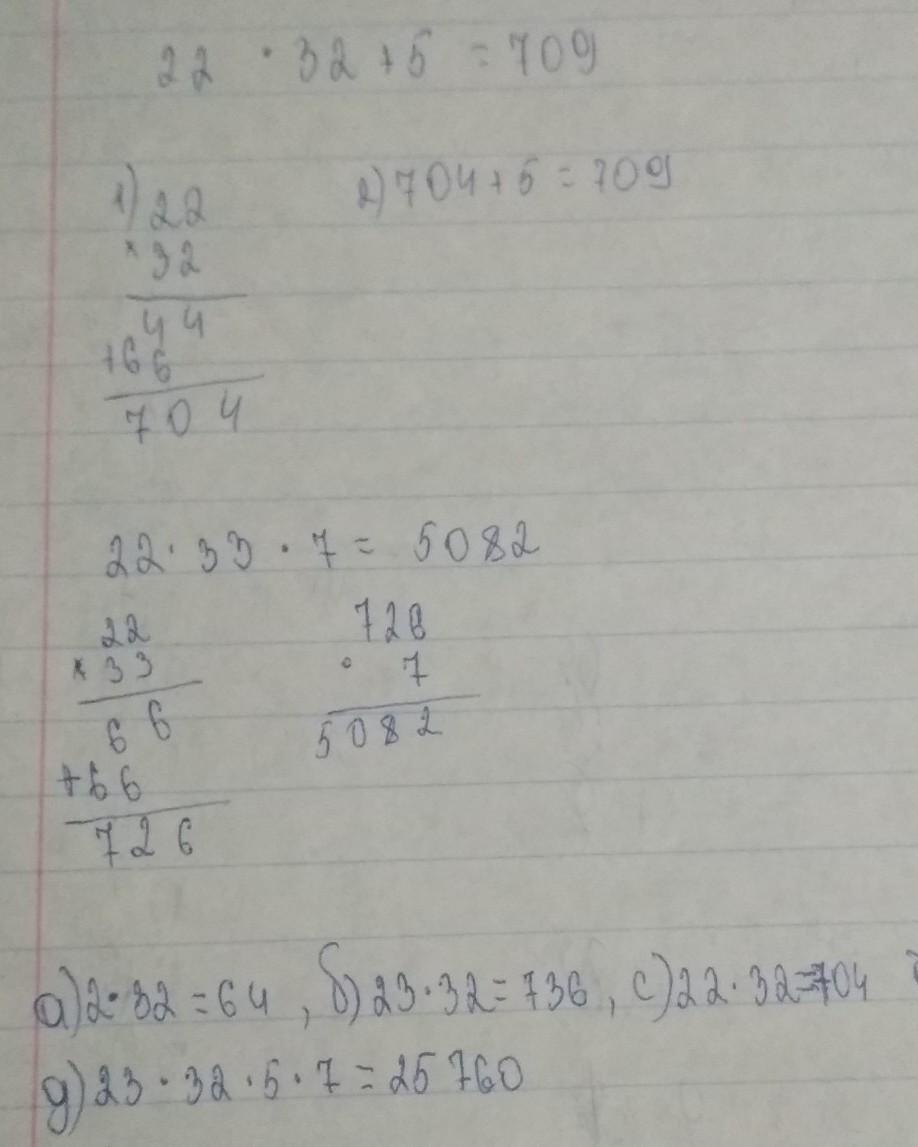 22 · 32 + 5 = 709
1) 22 2) 704 + 5 = 709
× 32
44
+66
704
22 · 33 · 7 = 5082
22 726
× 33 · 7
66 5082
+66
726
а) 2 · 32 = 64 , б) 23 · 32 = 736 , с) 22 · 32 = 704
д) 23 · 32 · 5 · 7 = 25 760